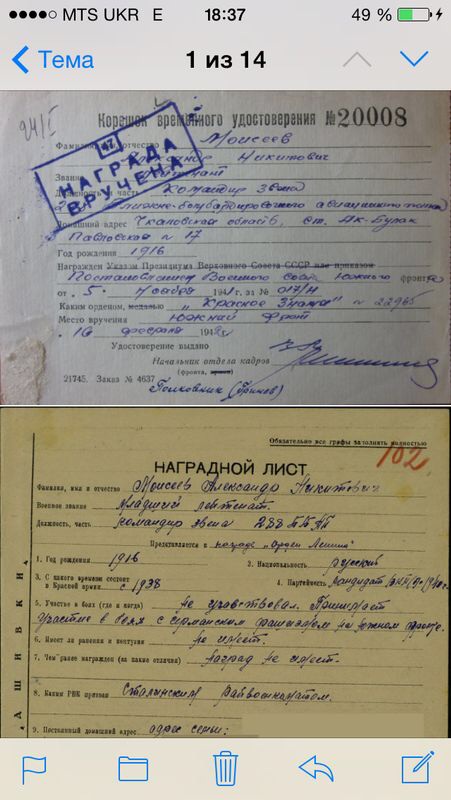 MTS UKR E 18:37 49 %
Тема 1 из 14
24/I
Корешок временного удостоверения №20008
Фамилия, имя, отчество Моисеев
Никитович
НАГРАДА
ВРУЧЕНА
Звание
Должность и часть Командир звена
Домашний адрес Чкаловская область, ст. Ак-Булак
Павловская № 17
Год рождения 1916
Награжден Указом Президиума Верховного Совета СССР или приказом
Постановлением Военного Южного фронта
от 5 Ноября за № 017/Н
Каким орденом, медалью „Красное Знамя" № 22965
Место вручения Южный фронт
февраля
Удостоверение выдано
Начальник отдела кадров
(фронта,
21745. Заказ № 4637 Полковник (Гринев)
Обязательно все графы заполнять полностью
102
НАГРАДНОЙ ЛИСТ
Фамилия, имя и отчество Моисеев Александр Никитович
Военное звание Младший лейтенант.
Должность, часть командир звена 288 ББАП
Представляется к награде „Орден Ленина"
1. Год рождения 1916 2. Национальность русский
3. С какого времени состоит
в Красной армии с 1938 4. Партийность кандидат
5. Участие в боях (где и когда) не участвовал. Принимает
участие в боях с германским фашизмом на южном фронте.
6. Имеет ли ранения и контузии не имеет.
7. Чем ранее награжден (за какие отличия) наград не имеет.
8. Каким РВК призван Сталинским райвоенкоматом.
9. Постоянный домашний адрес: адрес семьи: